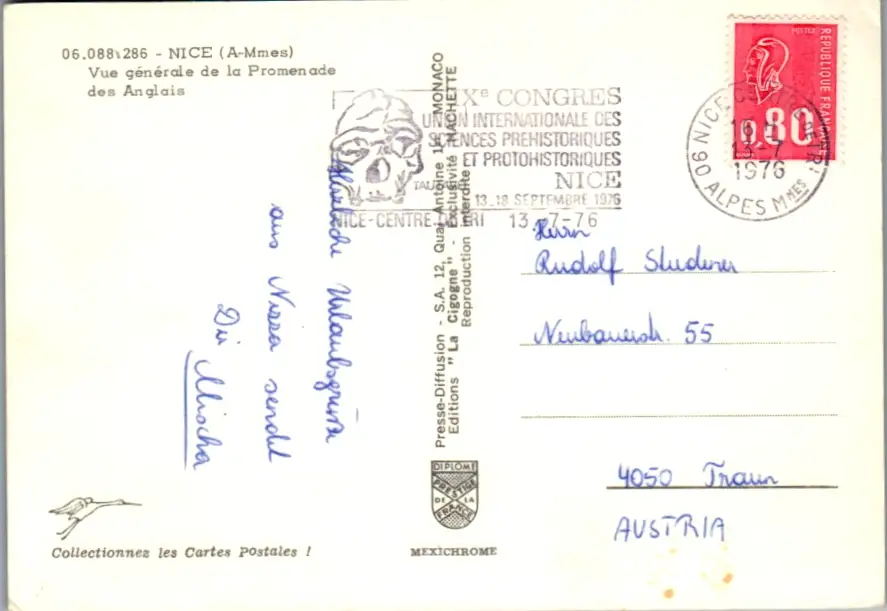 06.088 286 - NICE (A-Mmes)
Vue générale de la Promenade
des Anglais
IXe CONGRES
UNION INTERNATIONALE DES
SCIENCES PREHISTORIQUES
ET PROTOHISTORIQUES
NICE
13_18 SEPTEMBRE 1976
NICE-CENTRE DE TRI 13-7-76
POSTES
REPUBLIQUE FRANÇAISE
0,80
06 NICE CENTRE DE TRI
13-7
1976
ALPES Mmes
Herzliche Urlaubsgrüsse
aus Nizza sendet
Dir
Mischa
Presse-Diffusion - S.A. 12, Quai Antoine 1er MONACO
Editions "La Cigogne" - Exclusivité HACHETTE
Reproduction interdite
Herrn
Rudolf Studener
Neubauerstr. 55
4050 Traun
AUSTRIA
DIPLOME
PRESTIGE
DE LA
FRANCE
MEXICHROME
Collectionnez les Cartes Postales !